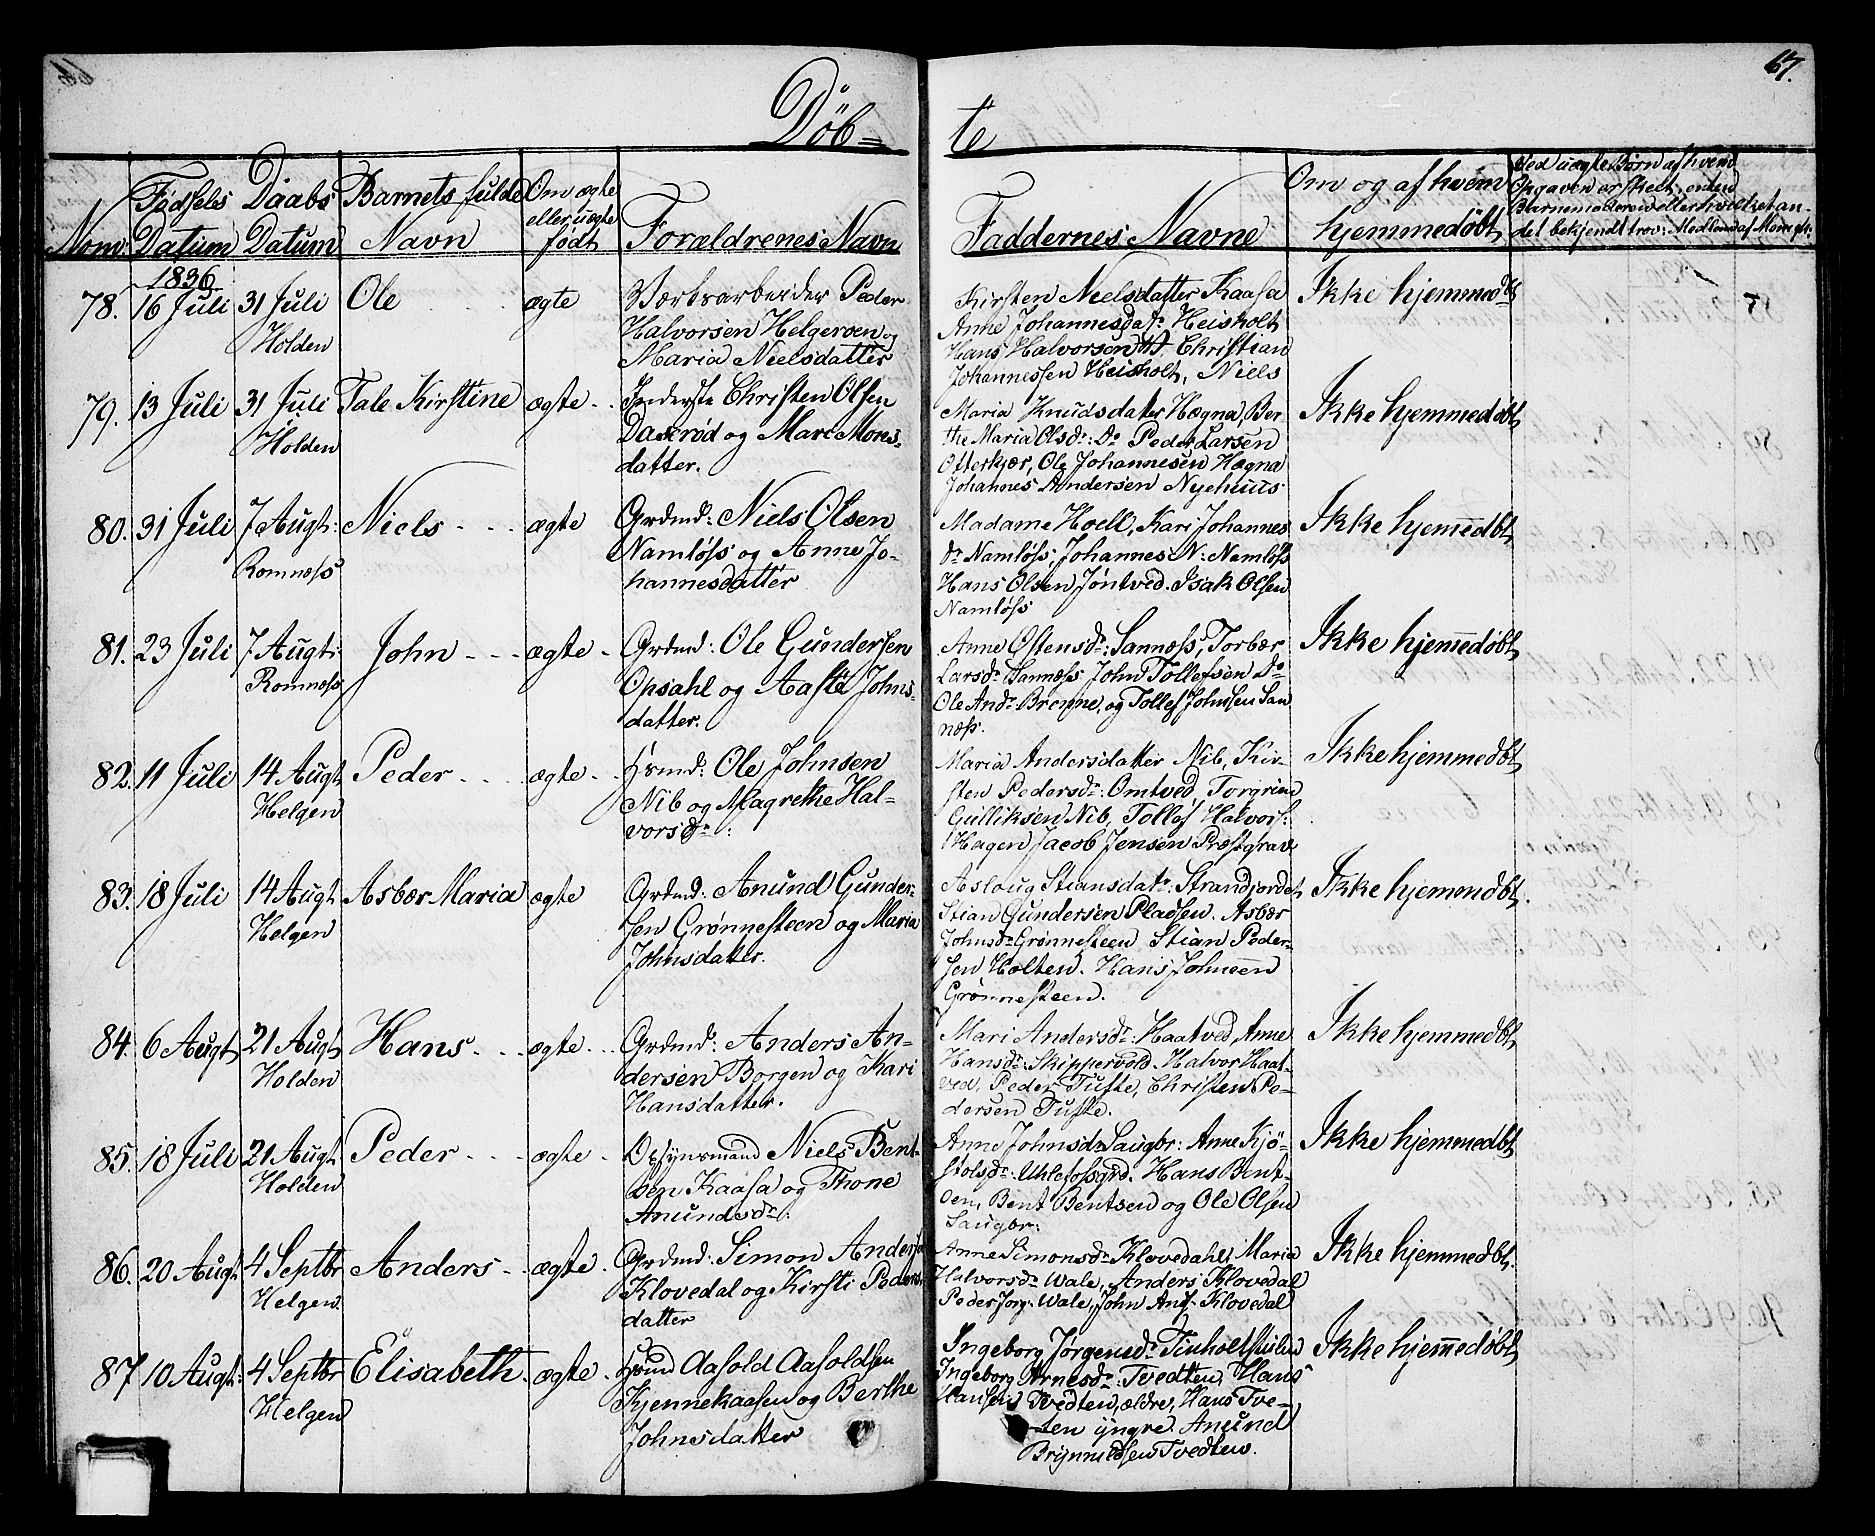 67.
Döb=
te
Nom:
Fødsels Datum
Daabs Datum
Barnets fulde Navn
Om ægte eller uægte født
Forældrenes Navn
Faddernes Navne
Om og af hvem hjemmedøbt
Ved uægte Børn af hvem
Opgaven er skeet, enten
Barnemoderen eller hvilket an-
det bekjendt trov: Medlem af Menigh:
1836
78. 16 Juli 31 Juli Ole ægte Værksarbeider Peder
Holden Halvorsen Helgeroen og
Maria Nielsdatter
Kirsten Nielsdatter Kaasa
Anne Johannesdatr Heisholt
Hans Halvorsen Christian
Johannessen Heisholt, Niels
Ikke hjemmedbt
79. 13 Juli 31 Juli Tale Kirstine ægte Inderste Christen Olsen
Holden Daserød og Mari Mons-
datter.
Maria Knudsdater Hægna, Ber-
the Maria Olsdr: Do Peder Larsen
Ofterkjær, Ole Johannesen Hægna
Johannes Andersen Nyehuus
Ikke hjemmedøbt
80. 31 Juli 7 Augt: Niels ægte Grdmd: Niels Olsen
Romnæss Namløss og Anne Jo-
hannesdatter
Madame Hoell, Kari Johannes
dr Namløss, Johannes N: Namløss
Hans Olsen Jøntved. Isak Olsen
Namløss
Ikke hjem̄edbt
81. 23 Juli 7 Augt: John ægte Grdmd: Ole Gundersen
Romnæss Opsahl og Aaste Johns-
datter.
Anne Østensdr: Sannæss, Torbær
Larsdr Sannæss John Tollefsen Do
Ole Andr: Brenne, og Tollef Johnsen San
næss.
Ikke hjem̄edøbt
82. 11 Juli 14 Augt Peder ægte Hsmd: Ole Johnsen
Helgen Nib og Magrethe Hal-
vorsdr:
Maria Andersdatter Nib, Kir-
sten Pedersdr: Omtved Torgrim
Gulliksen Nib, Tollef Halvors:
Hagen Jacob Jensen Præstgrave
Ikke hjemmedbt
83. 18 Juli 14 Augt Asbær Maria ægte Grdmd: Anund Gunder-
Helgen sen Grønnesteen og Maria
Johnsdatter.
Aslaug Stiansdatr: Strandjordet
Stian Gundersen Pladsen. Asbær
Johnsdr Grønnesteen Stian Peder-
sen Holten. Hans Johnsen
Grønnesteen.
Ikke hjemmdbt.
84. 6 Augt 21 Augt Hans ægte Grdmd: Anders An-
Holden dersen Borgen og Kari
Hansdatter.
Mari Andersdr: Haatved, Anne
Hansdr: Skippervold. Halvor Haat-
ved, Peder Tufte, Christen Pe-
dersen Tufte.
Ikke hjemmedbt
85. 18 Juli 21 Augt Peder ægte Opsynsmand Niels Bent-
Holden sen Kaasa og Thone
Anundsdr:
Anne Johnsdr Saugbr: Anne Kjö-
stolsdr: Uhlefossgrd. Hans Bent-
sen, Bent Bentsen og Ole Olsen
Saugbr:
Ikke hjemmedbt
86. 20 Augt 4 Septbr Anders ægte Grdmd: Simon Anders
Helgen Klovedal og Kirsti Peders
datter
Anne Simonsdr Klovedahl Maria
Halvorsdr Wale, Anders Klovedal
Peder Jorg: Wale, John Ands: Klovedal
Ikke hjemmedbt.
87 10 Augt: 4 Septbr Elisabeth ægte Hsmd Aasold Aasoldsen
Helgen Kjennekaasen og Berthe
Johnsdatter
Ingeborg Jørgensdr
Ingeborg Arnesdr: Tvedten, Hans
Hansen Tvedten, ældre, Hans Tve-
ten yngre. Anund
Brynnildsen Tvedten.
Ikke hjem̄edøbt